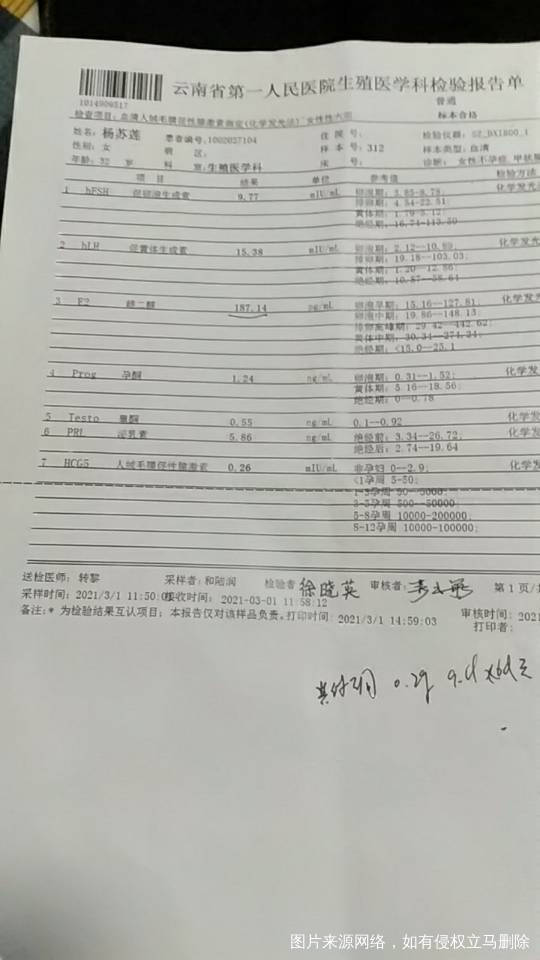 云南省第一人民医院生殖医学科检验报告单
1014909517
普通
检查项目: 血清人绒毛膜促性腺激素测定(化学发光法) 女性性六项
标本合格
姓名: 杨苏莲 患者编号: 1002027104 住院号: 检验仪器: SZ_DXI800_1
性别: 女 病区: 样本号: 312 样本类型: 血清
年龄: 32 岁 科室: 生殖医学科 床号: 诊断: 女性不孕症
项目 结果 单位 参考值 检验方法
1 hFSH 促卵泡生成素 9.77 mIU/mL 卵泡期: 3.85-8.78; 化学发光
排卵期: 4.54-22.51;
黄体期: 1.79-5.12;
绝经期: 16.74-113.59
2 hLH 促黄体生成素 15.38 mIU/mL 卵泡期: 2.12--10.89; 化学发光
排卵期: 19.18--103.03;
黄体期: 1.20--12.86;
绝经期: 10.87--58.64
3 E2 雌二醇 187.14 pg/mL 卵泡早期: 15.16--127.81; 化学发
卵泡中期: 19.86--148.13;
排卵高峰期: 29.42--442.62;
黄体中期: 30.34--274.24;
绝经期: <15.0--25.1
4 Prog 孕酮 1.24 ng/mL 卵泡期: 0.31--1.52; 化学发
黄体期: 5.16--18.56;
绝经期: 0--0.78
5 Testo 睾酮 0.55 ng/mL 0.1--0.92 化学发
6 PRL 泌乳素 5.86 ng/mL 绝经前: 3.34--26.72; 化学发
绝经后: 2.74--19.64
7 HCG5 人绒毛膜促性腺激素 0.26 mIU/mL 非孕妇 0--2.9; 化学发
<1孕周 5-50;
5-8孕周 10000-200000;
8-12孕周 10000-100000;
送检医师: 转黎 采样者: 和陆润 检验者 徐晓英 审核者: 第 1 页/
采样时间: 2021/3/1 11:50:0 接收时间: 2021-03-01 11:58:12 审核时间: 2021
备注: * 为检验结果互认项目; 本报告仅对该样品负责。打印时间: 2021/3/1 14:59:03 打印者:
0.2g
图片来源网络，如有侵权立马删除